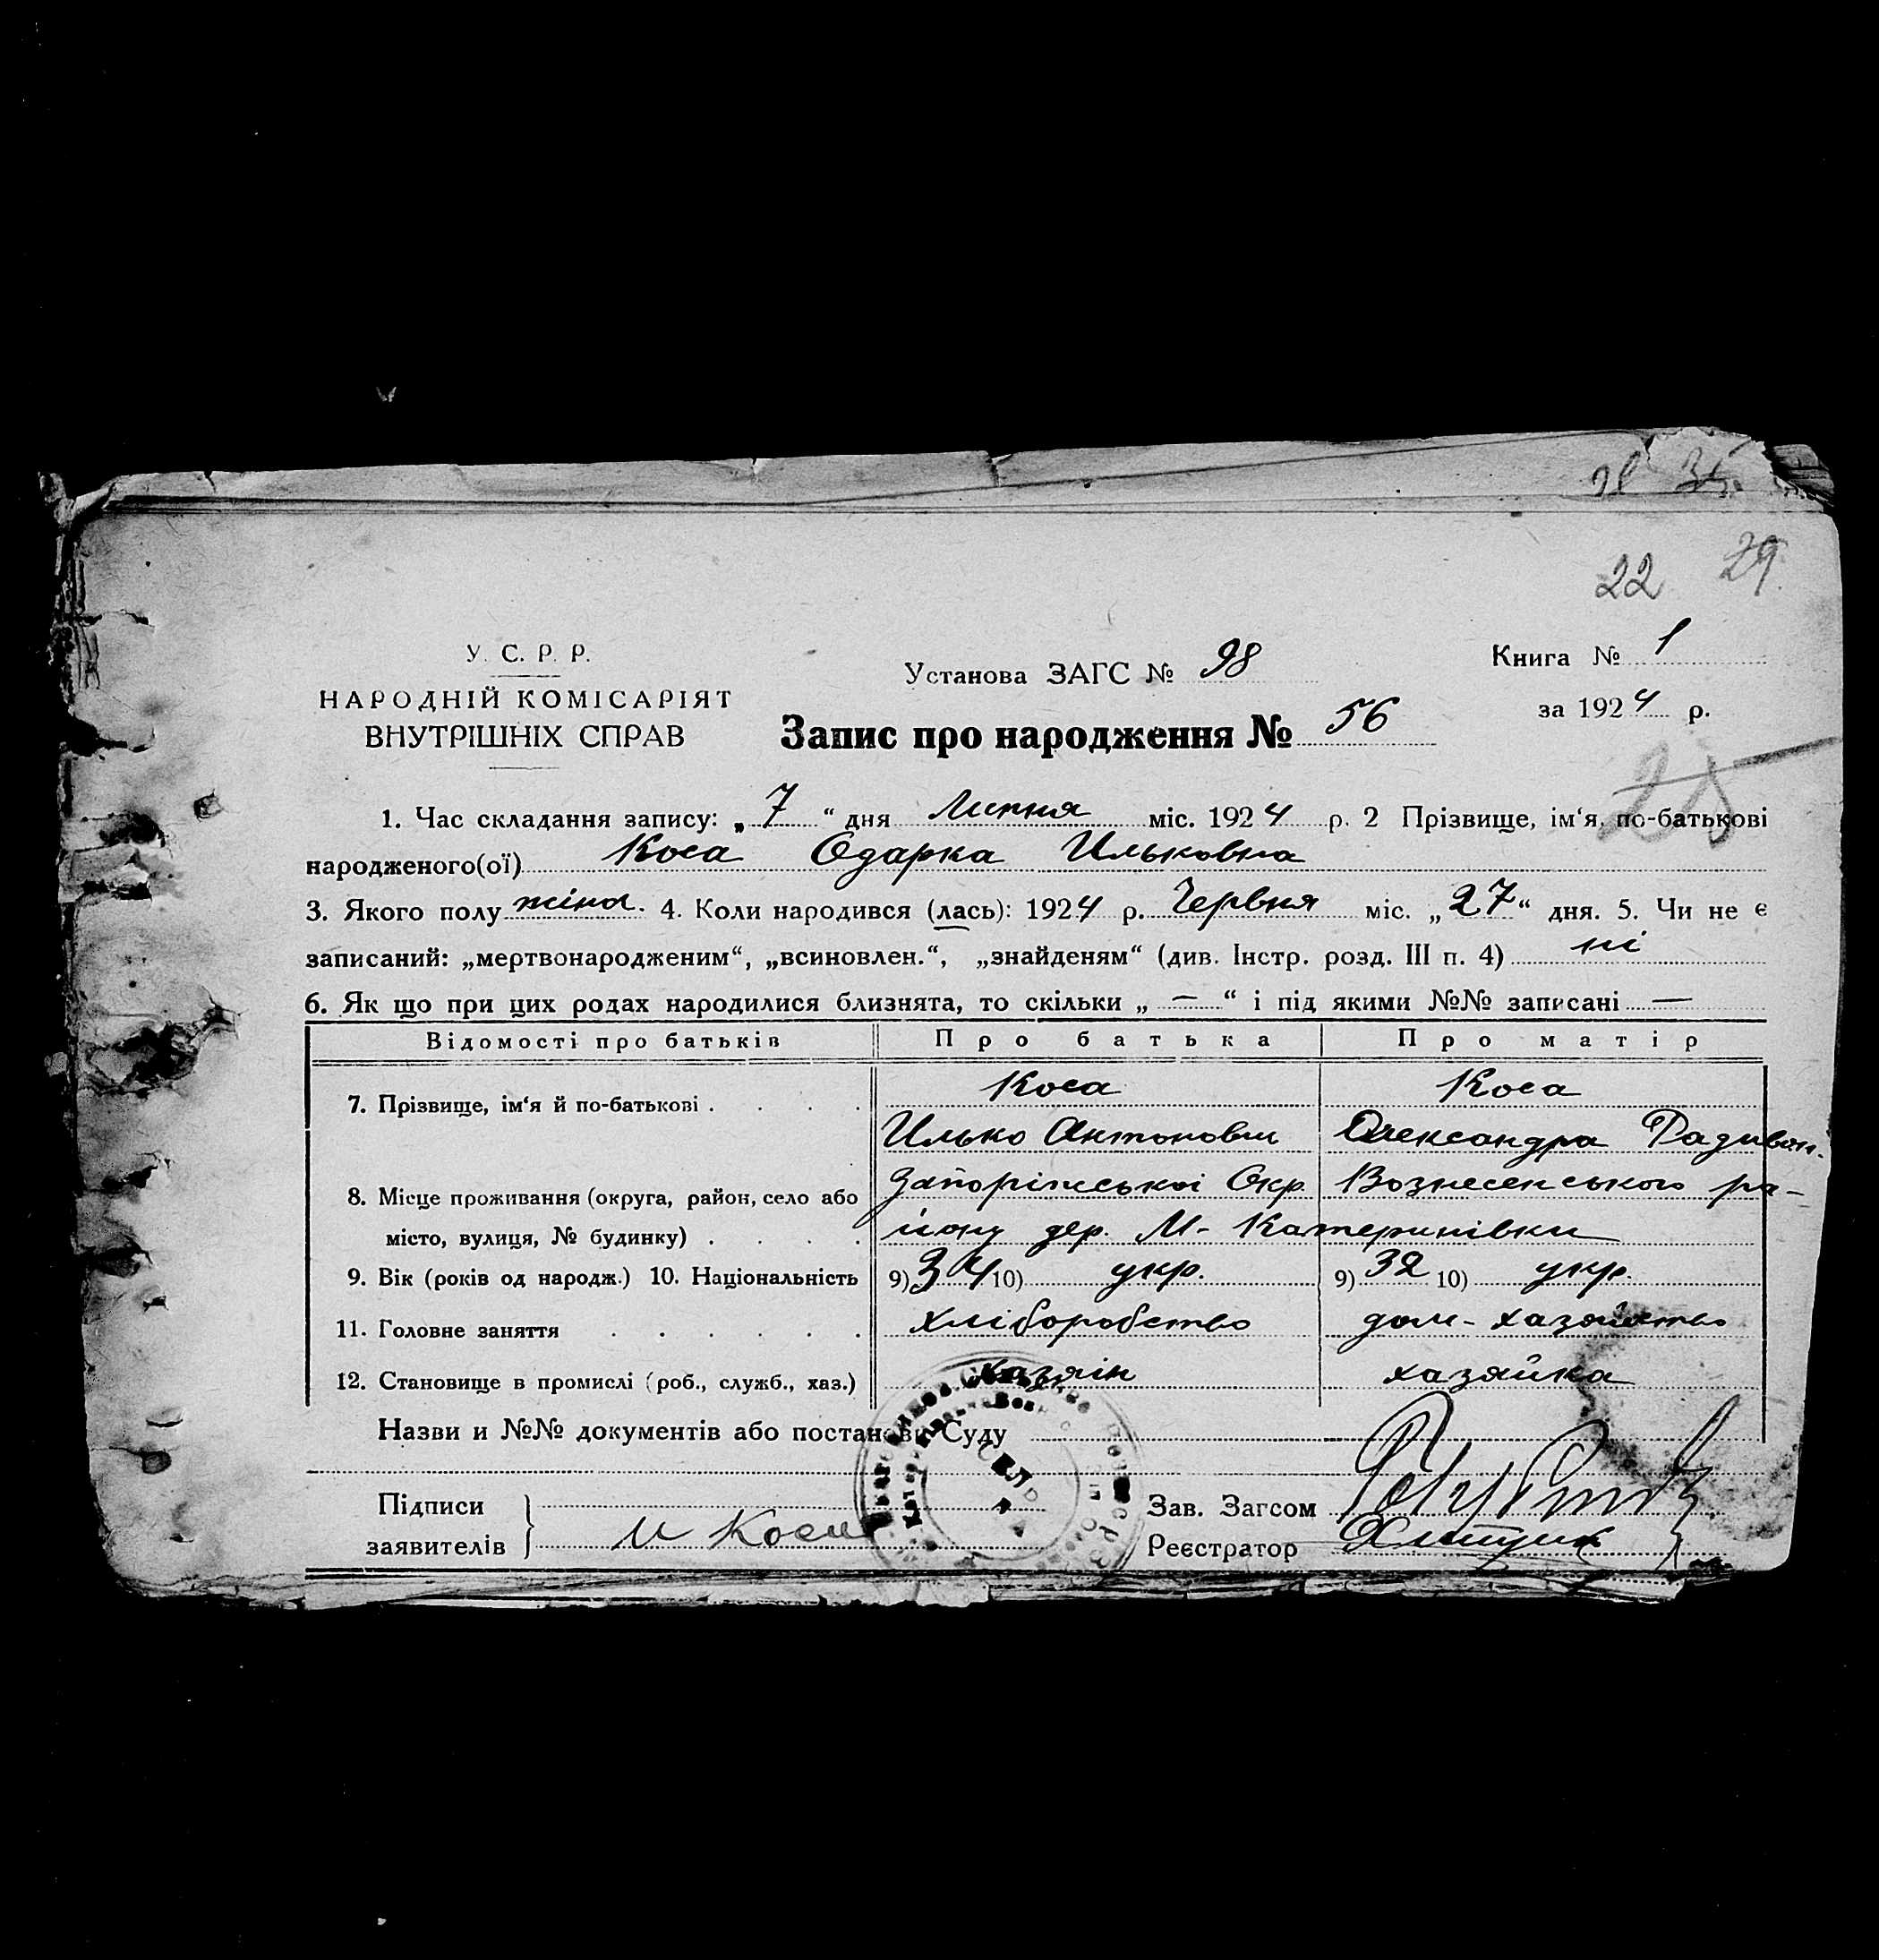 35.
22 29
У. С. Р. Р.
НАРОДНІЙ КОМІСАРІЯТ
ВНУТРІШНІХ СПРАВ
Установа ЗАГС № 98
Запис про народження № 56
Книга № 1
за 1924 р.
1. Час складання запису: „ 7 “ дня Липня міс. 1924 р. 2 Прізвище, ім‘я, по-батькові
народженого(ої) Коса Одарка Ильковна
3. Якого полу жіноч. 4. Коли народився (лась): 1924 р. Червня міс. „27“ дня. 5. Чи не є
записаний: „мертвонародженим“, „всиновлен.“, „знайденям“ (див. Інстр. розд. III п. 4) ні
6. Як що при цих родах народилися близнята, то скільки „ — “ і під якими №№ записані —
Відомості про батьків Про батька Про матір
7. Прізвище, ім‘я й по-батькові . . . . Коса Коса
Илько Антонович Олександра Радивон.
8. Місце проживання (округа, район, село або Запоріжської Окр. Вознесенського ра-
місто, вулиця, № будинку) . . . . йону дер. М- Катеринівки
9. Вік (років од народж.) 10. Національність 9) 34 10) укр. 9) 32 10) укр.
11. Головне заняття . . . . . . хліборобство дом- хазяйство
12. Становище в промислі (роб., служб., хаз.) хазяін хазяйка
Назви и №№ документів або постанови Суду
Підписи
заявителів И Коса
Зав. Загсом
Реєстратор